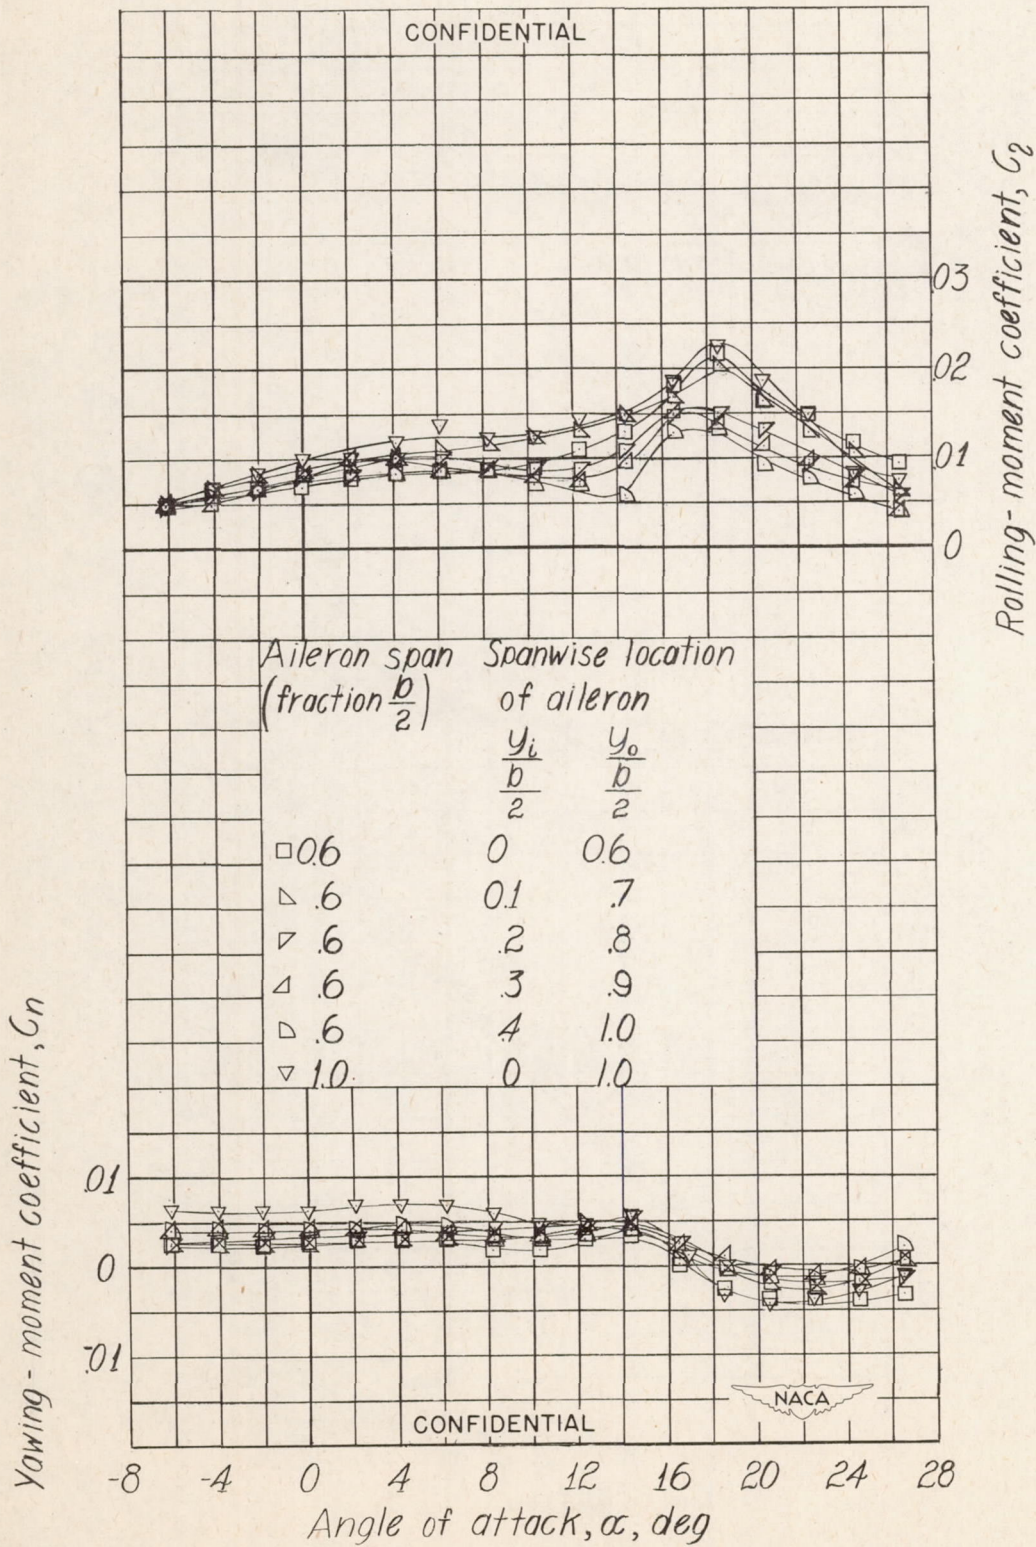 CONFIDENTIAL
.03
.02
.01
0
Rolling-moment coefficient, Cl
Aileron span Spanwise location
(fraction b/2) of aileron
yi/b/2 yo/b/2
0.6 0 0.6
.6 0.1 .7
.6 .2 .8
.6 .3 .9
.6 .4 1.0
1.0 0 1.0
Yawing-moment coefficient, Cn
.01
0
-.01
NACA
CONFIDENTIAL
-8 -4 0 4 8 12 16 20 24 28
Angle of attack, α, deg